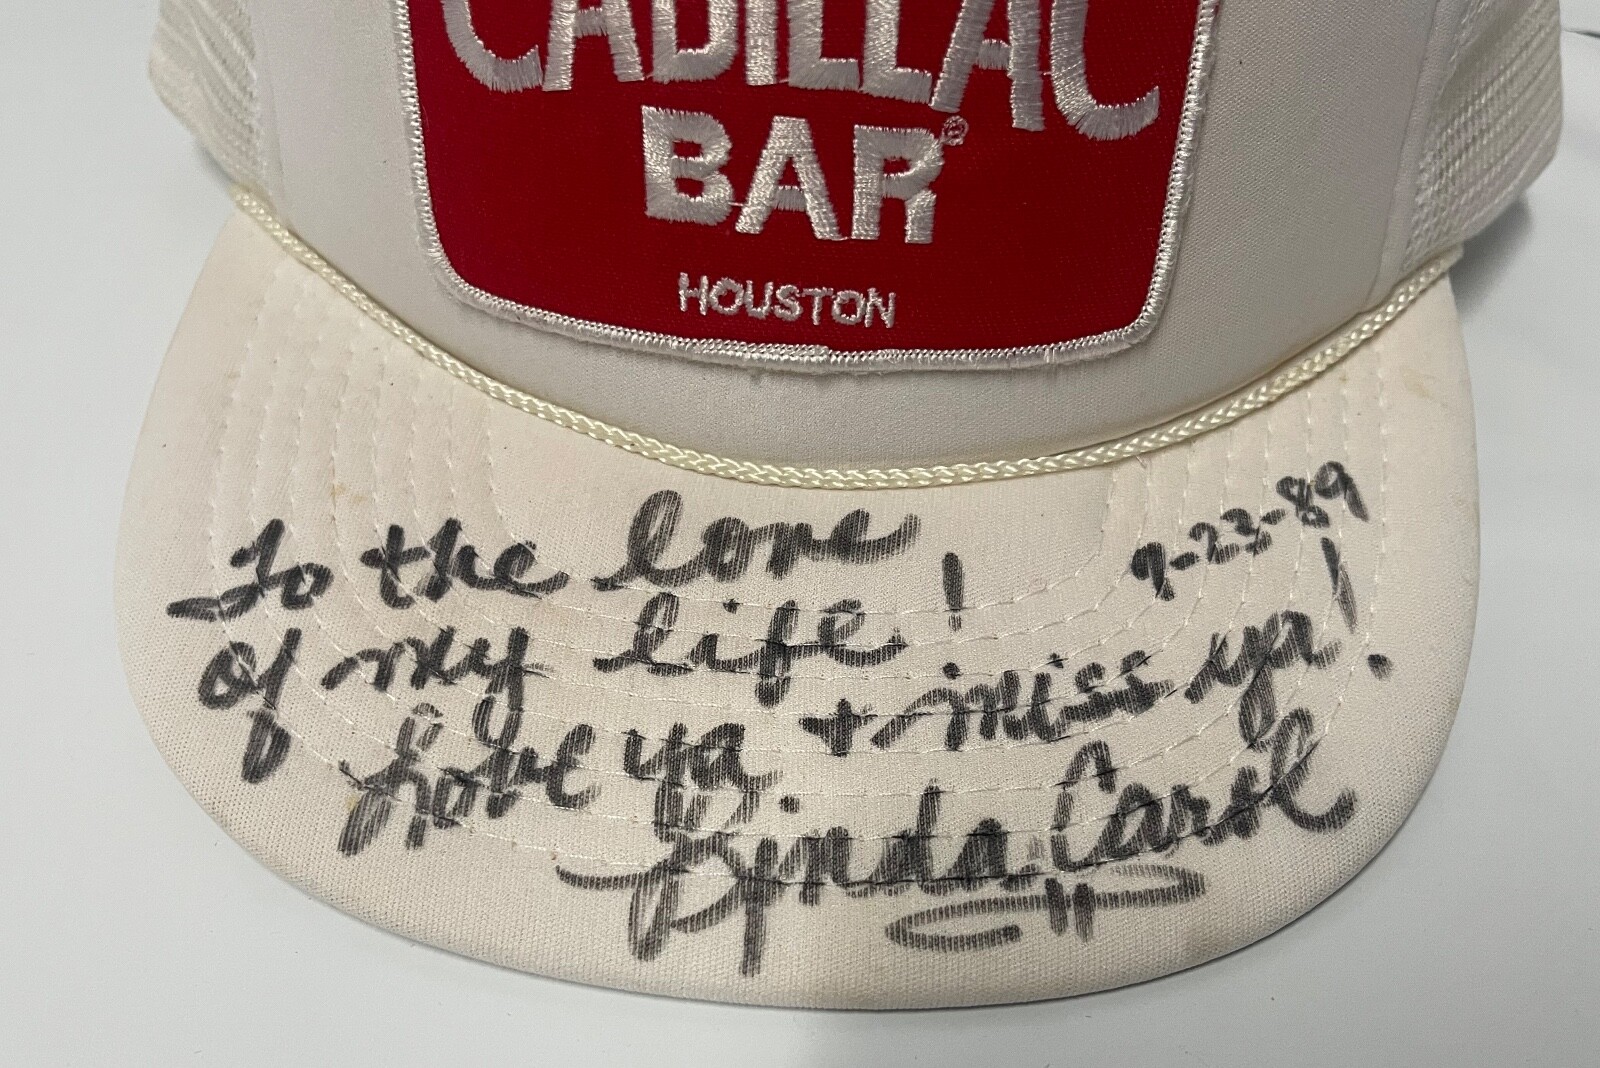 CADILLAC
BAR®
HOUSTON
9-23-89
To the love
of my life!
Love ya + miss ya!
Linda Carol